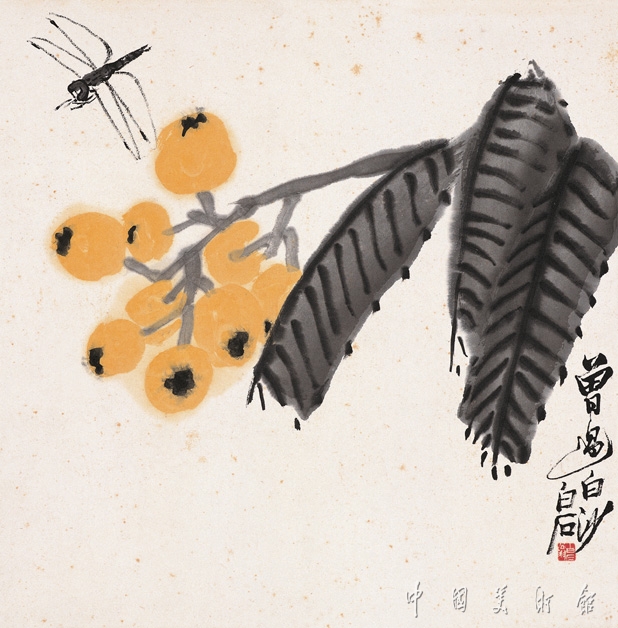 曾過白沙
白石
中國美術館